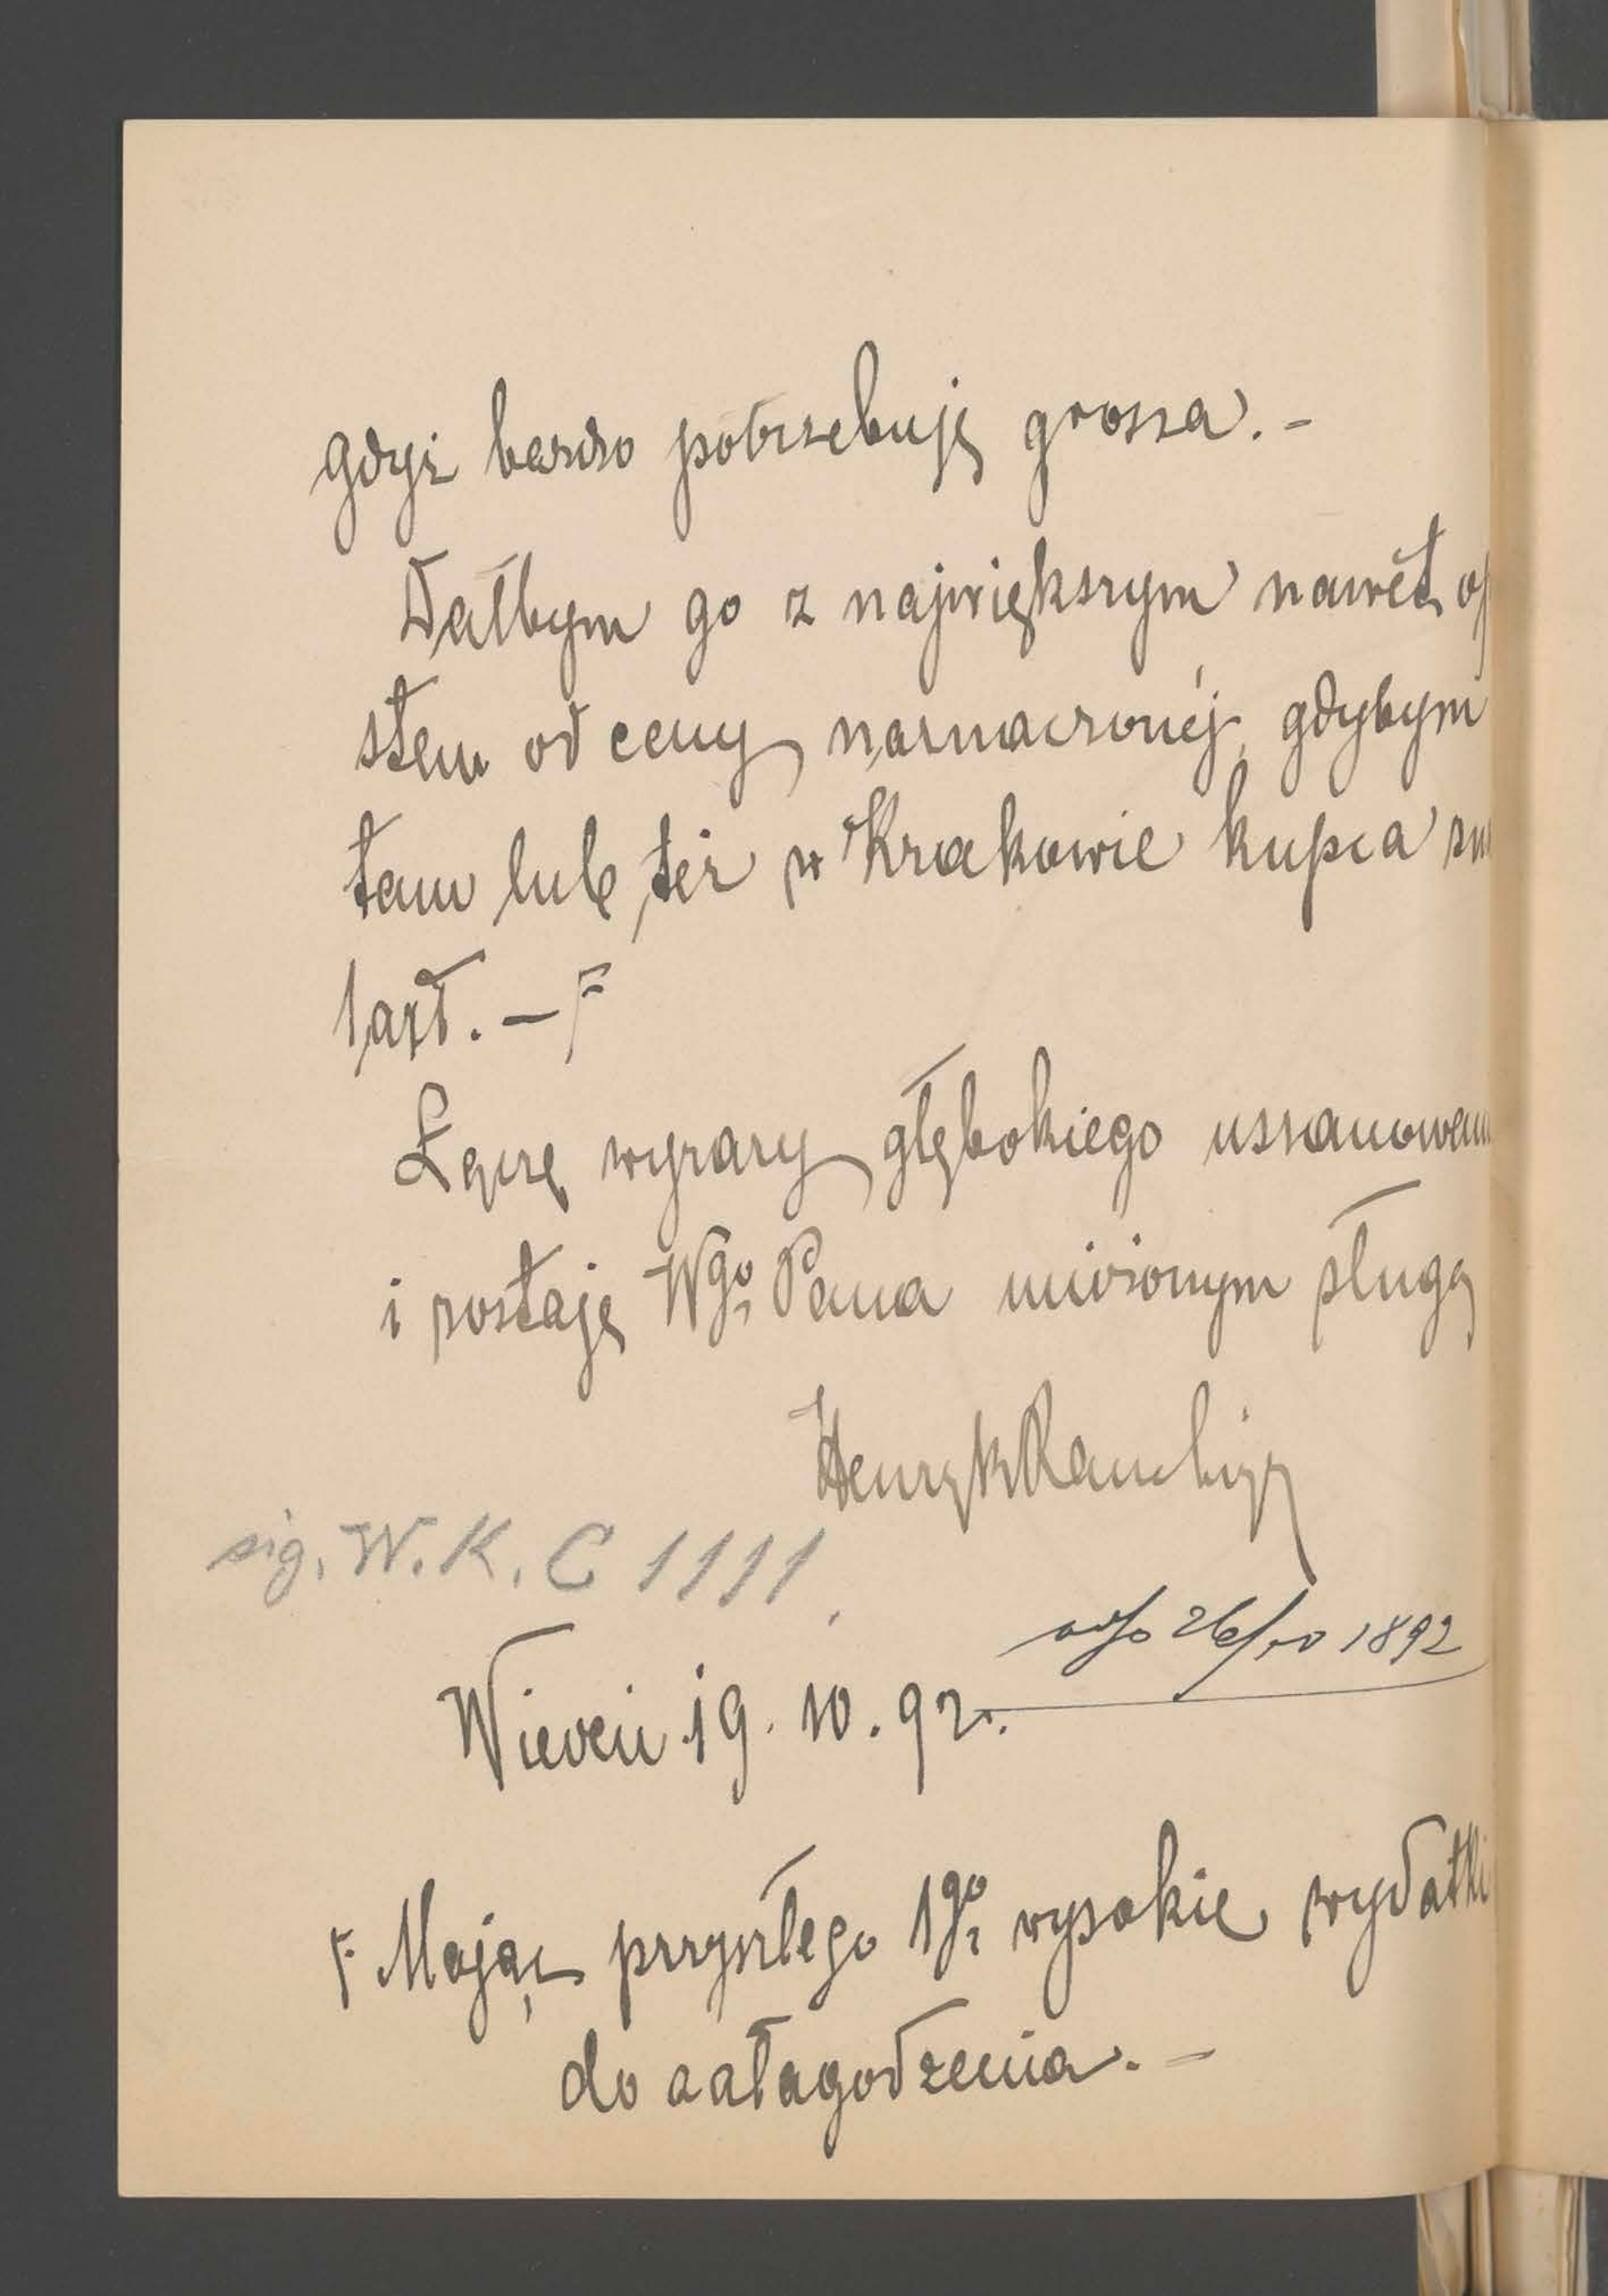 gdyż bardzo potrzebuję grosza. –
Dałbym go z największym nawet
stem od ceny naznaczonéj, gdybym
tam lub też w Krakowie kupca
lazł. – F
Łączę wyrazy głębokiego uszanowan
i zostaję Wgo Pana uniżonym sługą
Henryk Rauchinger
sig. W. K. C 1111,
odp 26/10 1892
Wiedeń 19. 10. 92 r.
F Mając przyszłego 1go wysokie wydatki
do załagodzenia. –